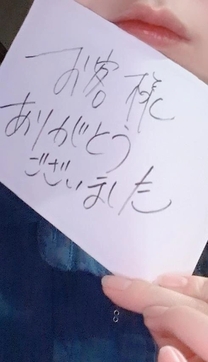 お客様
ありがとう
ございました